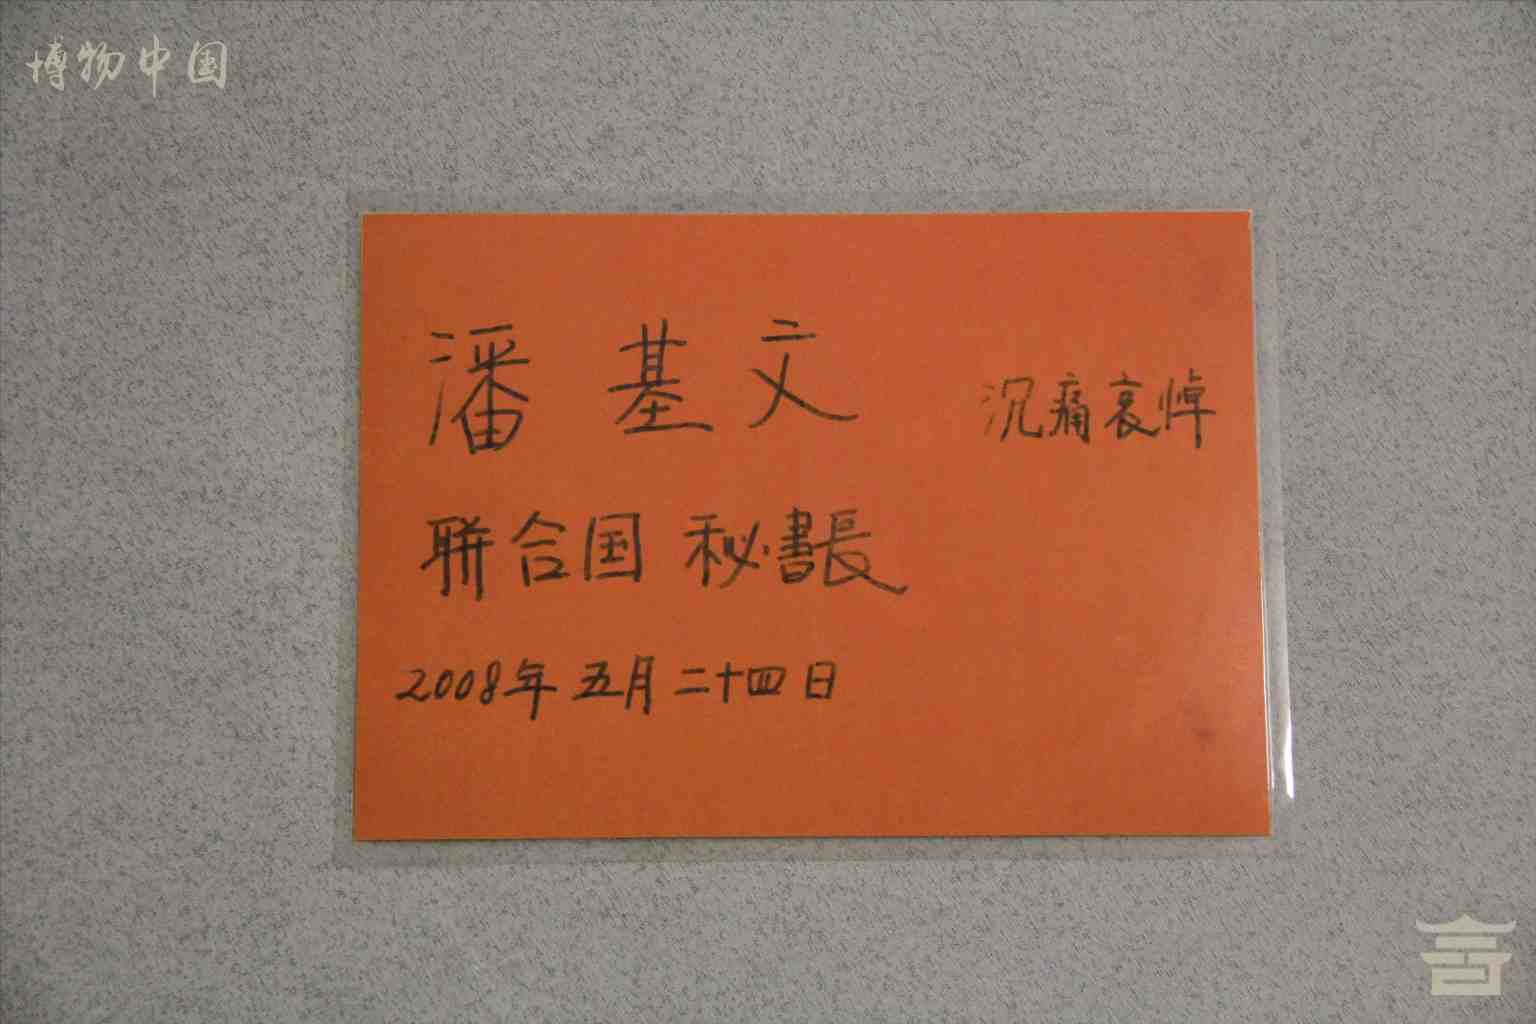 博物中国
潘 基 文 沉痛哀悼
聯合国 秘書長
2008年 五月 二十四 日